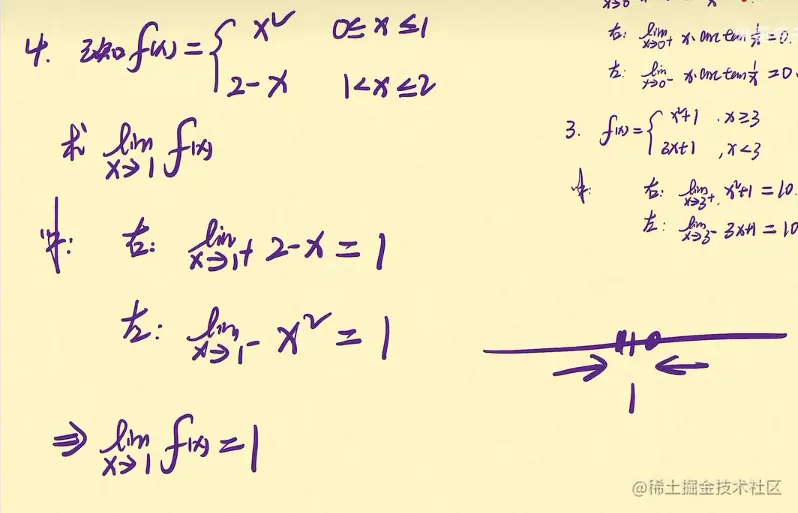 4. 已知 f(x) = { x² 0≤x≤1
2-x 1<x≤2
求 lim x→1 f(x)
解: 右: lim x→1+ 2-x = 1
左: lim x→1- x² = 1
⇒ lim x→1 f(x) = 1
右: lim x→0+ x·arctan 1/x = 0.
左: lim x→0- x·arctan 1/x = 0.
3. f(x) = { x²+1 , x≥3
3x+1 , x<3
解: 右: lim x→3+ x²+1 = 10.
左: lim x→3- 3x+1 = 10
1
@稀土掘金技术社区